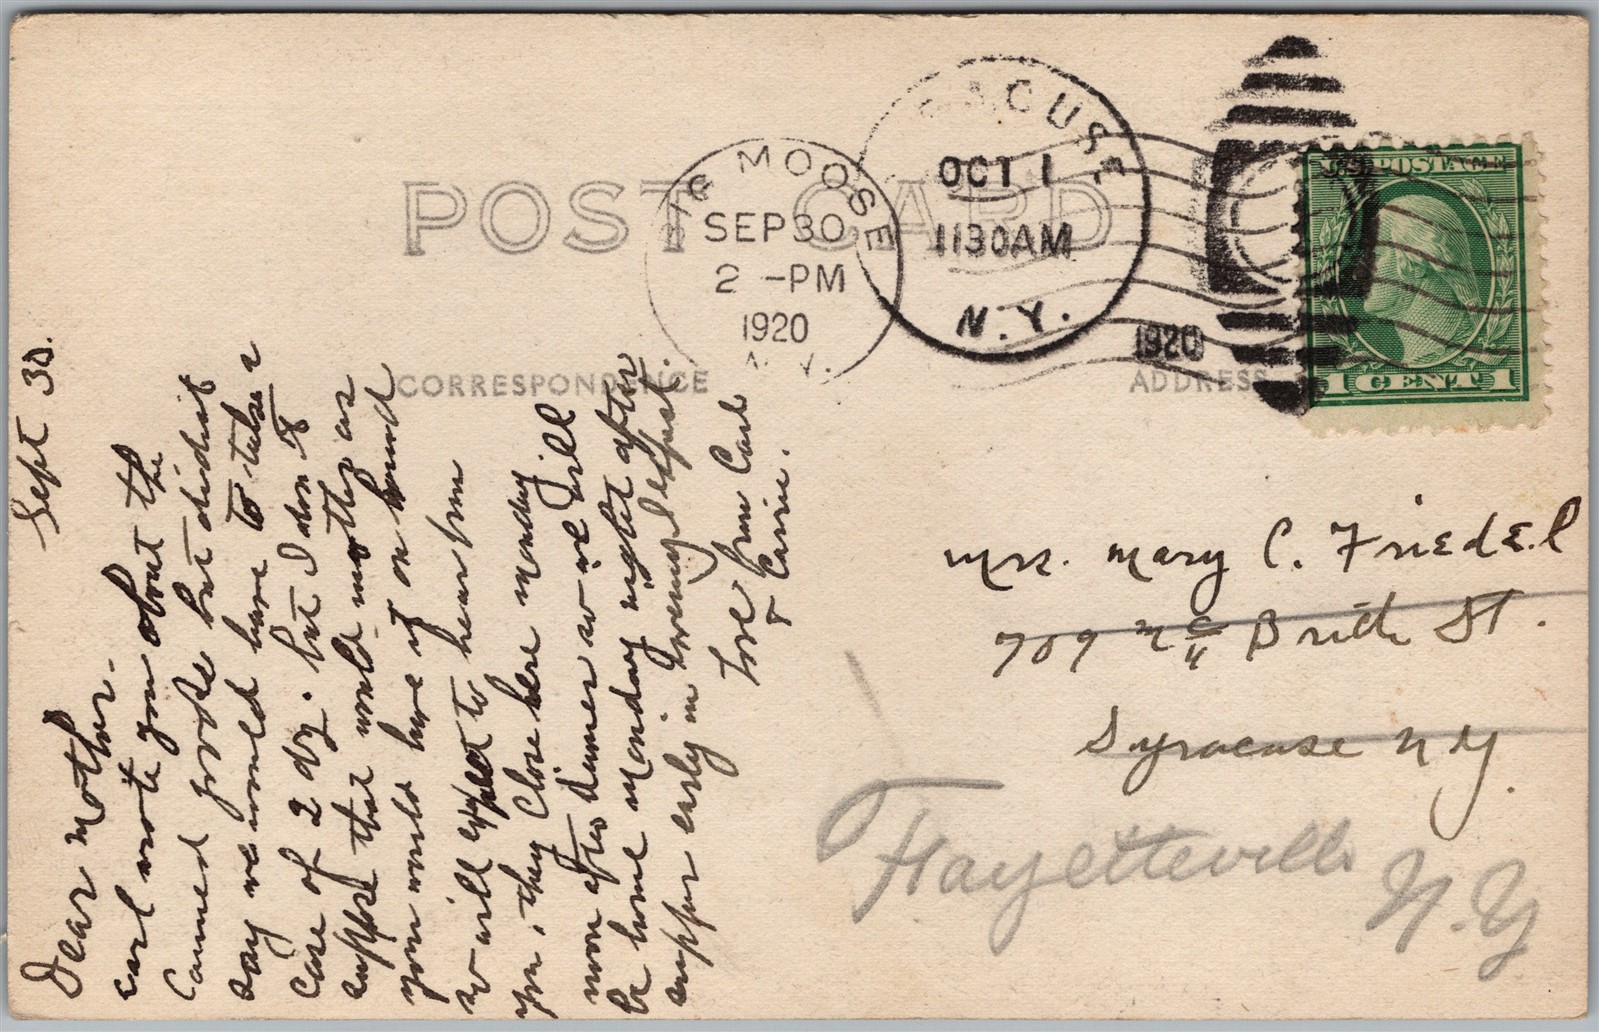 POST CARD
CORRESPONDENCE
ADDRESS
BIG MOOSE
SEP 30
2 - PM
1920
N.Y.
SYRACUSE
OCT 1
1130AM
N.Y.
1920
U.S. POSTAGE
1 CENT 1
Sept 30.
Dear Mother -
Carl wrote you about the
canned goods but didnit
say we would have to take a
case of 2 dz. but I don't
suppose that would matter as
you would have it on hand
so will expect to hear from
you. they close here monday
noon after dinner so we will
be home monday night after
supper early in
Love from Carl
& Carrie.
Mrs. Mary C. Friedel
709 Britt St.
Syracuse N Y.
Fayetteville
N.Y